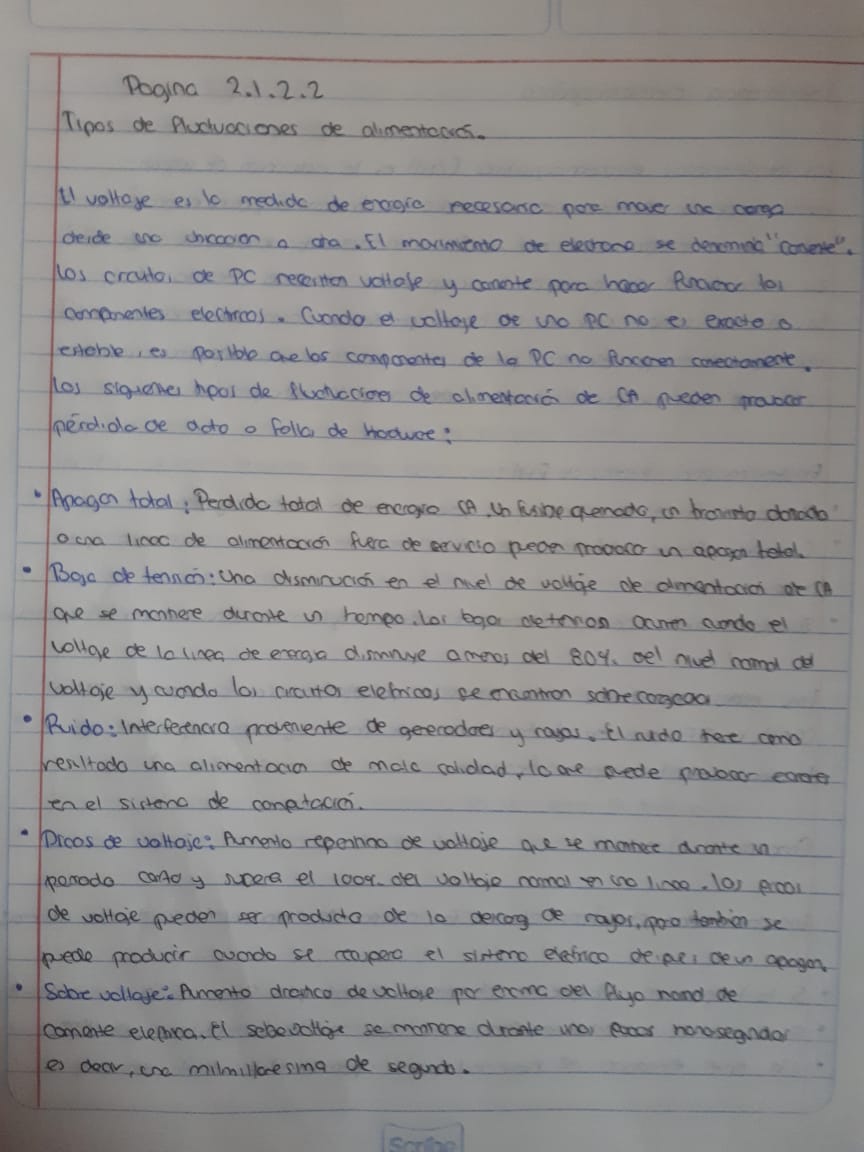 Pagina 2.1.2.2
Tipos de fluctuaciones de alimentación.
El voltaje es la medida de energía necesaria para mover una carga
desde una dirección a otra. El movimiento de electrone se denomina "corriente".
Los circuitos de PC necesitan voltaje y corriente para hacer funcionar los
componentes electricos. Cuando el voltaje de una PC no es exacto o
estable, es posible que los componentes de la PC no funcionen correctamente.
Los siguientes tipos de fluctuaciones de alimentación de CA pueden provocar
pérdida de dato o falla de hardware:
• Apagon total: Perdida total de energia CA. Un fusible quemado, un transfo dañado
o una linea de alimentación fuera de servicio pueden provocar un apagon total.
• Baja de tensión: Una disminución en el nivel de voltaje de alimentación de CA
que se mantiene durante un tiempo. Las bajas de tension ocurren cuando el
voltaje de la linea de energia disminuye a menos del 80% del nivel normal del
voltaje y cuando los circuitos eletricos se encuentran sobrecargados
• Ruido: Interferencia proveniente de generadores y rayos. El ruido tiene como
resultado una alimentacion de mala calidad, lo que puede provocar errores
en el sistema de computación.
• Picos de voltaje: Aumento repentino de voltaje que se mantiene durante un
periodo corto y supera el 100% del voltaje normal en una linea. Los picos
de voltaje pueden ser producto de la descarg de rayos, pero tambien se
puede producir cuando se recupera el sistema eletrico despues de un apagon.
• Sobre voltaje: Aumento dramatico de voltaje por encima del flujo normal de
corriente eletrica. El sobrevoltaje se mantiene durante unos pocos nanosegundos
es decir, una milmillonesima de segundo.
Scribe